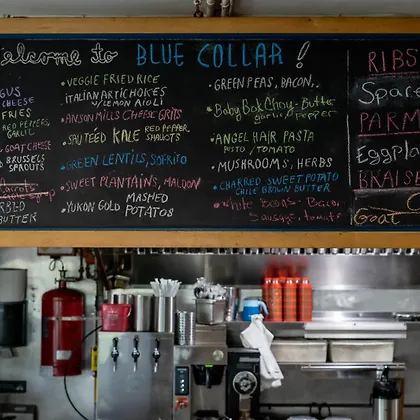 elcome to BLUE COLLAR!
GUS
CHEESE
FRIES
RED PEPPERS,
GARLIC
GOAT CHEESE
BRUSSELS
SPROUTS
BUTTER
•VEGGIE FRIED RICE
ITALIAN ARTICHOKES
W/LEMON AIOLI
•ANSON MILLS CHEESE GRITS
•SAUTÉED KALE RED PEPPER,
SHALLOTS
•GREEN LENTILS, SOFRITO
•SWEET PLANTAINS, MALDON
•YUKON GOLD MASHED
POTATOS
•GREEN PEAS, BACON,
•Baby Bok Choy - Butter
garlic, pepper
•ANGEL HAIR PASTA
PESTO / TOMATO
•MUSHROOMS, HERBS
•CHARRED SWEET POTATO
CHILE BROWN BUTTER
•White Beans - Bacon
Sausage, tomato
RIBS
Spare
PARM
Eggpla
BRAIS
Goat C